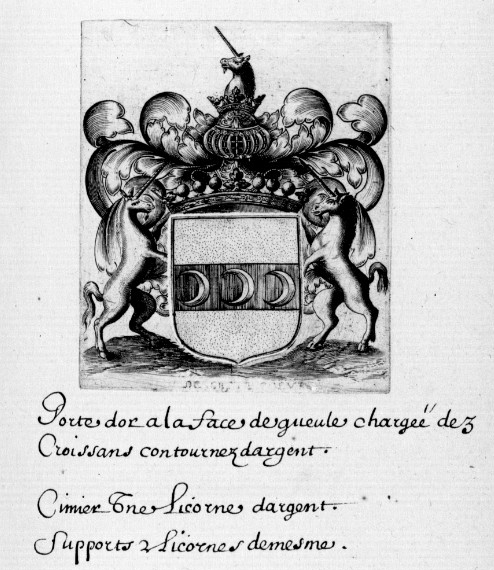 Porte dor a la face de gueule chargée de 3
Croissans contournez dargent.
Cimier Vne Licorne dargent.
Supports 2 Licornes demesme.